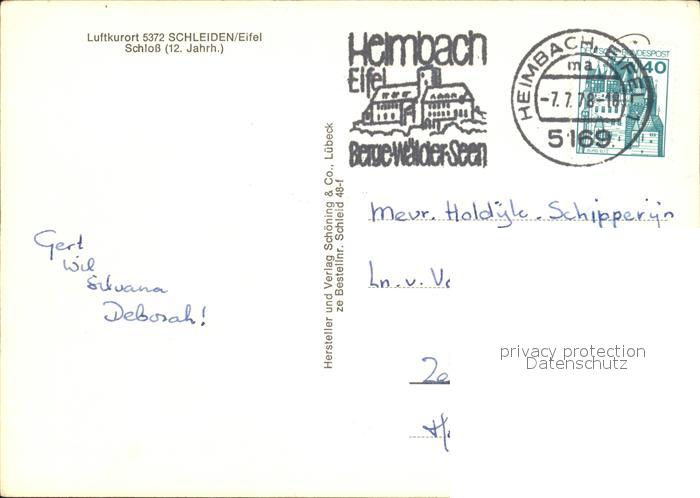 Luftkurort 5372 SCHLEIDEN/Eifel
Schloß (12. Jahrh.)
Heimbach
Eifel
Berge Wälder Seen
HEIMBACH, EIFEL 1
ma
-7.7.78-18
5169
DEUTSCHE BUNDESPOST
40
Hersteller und Verlag Schöning & Co., Lübeck
ze Bestellnr. Schleid 48-f
Mevr. Holdijk-Schipperijn
Ln. v. V
Gert
Wil
Silvana
Deborah!
privacy protection
Datenschutz